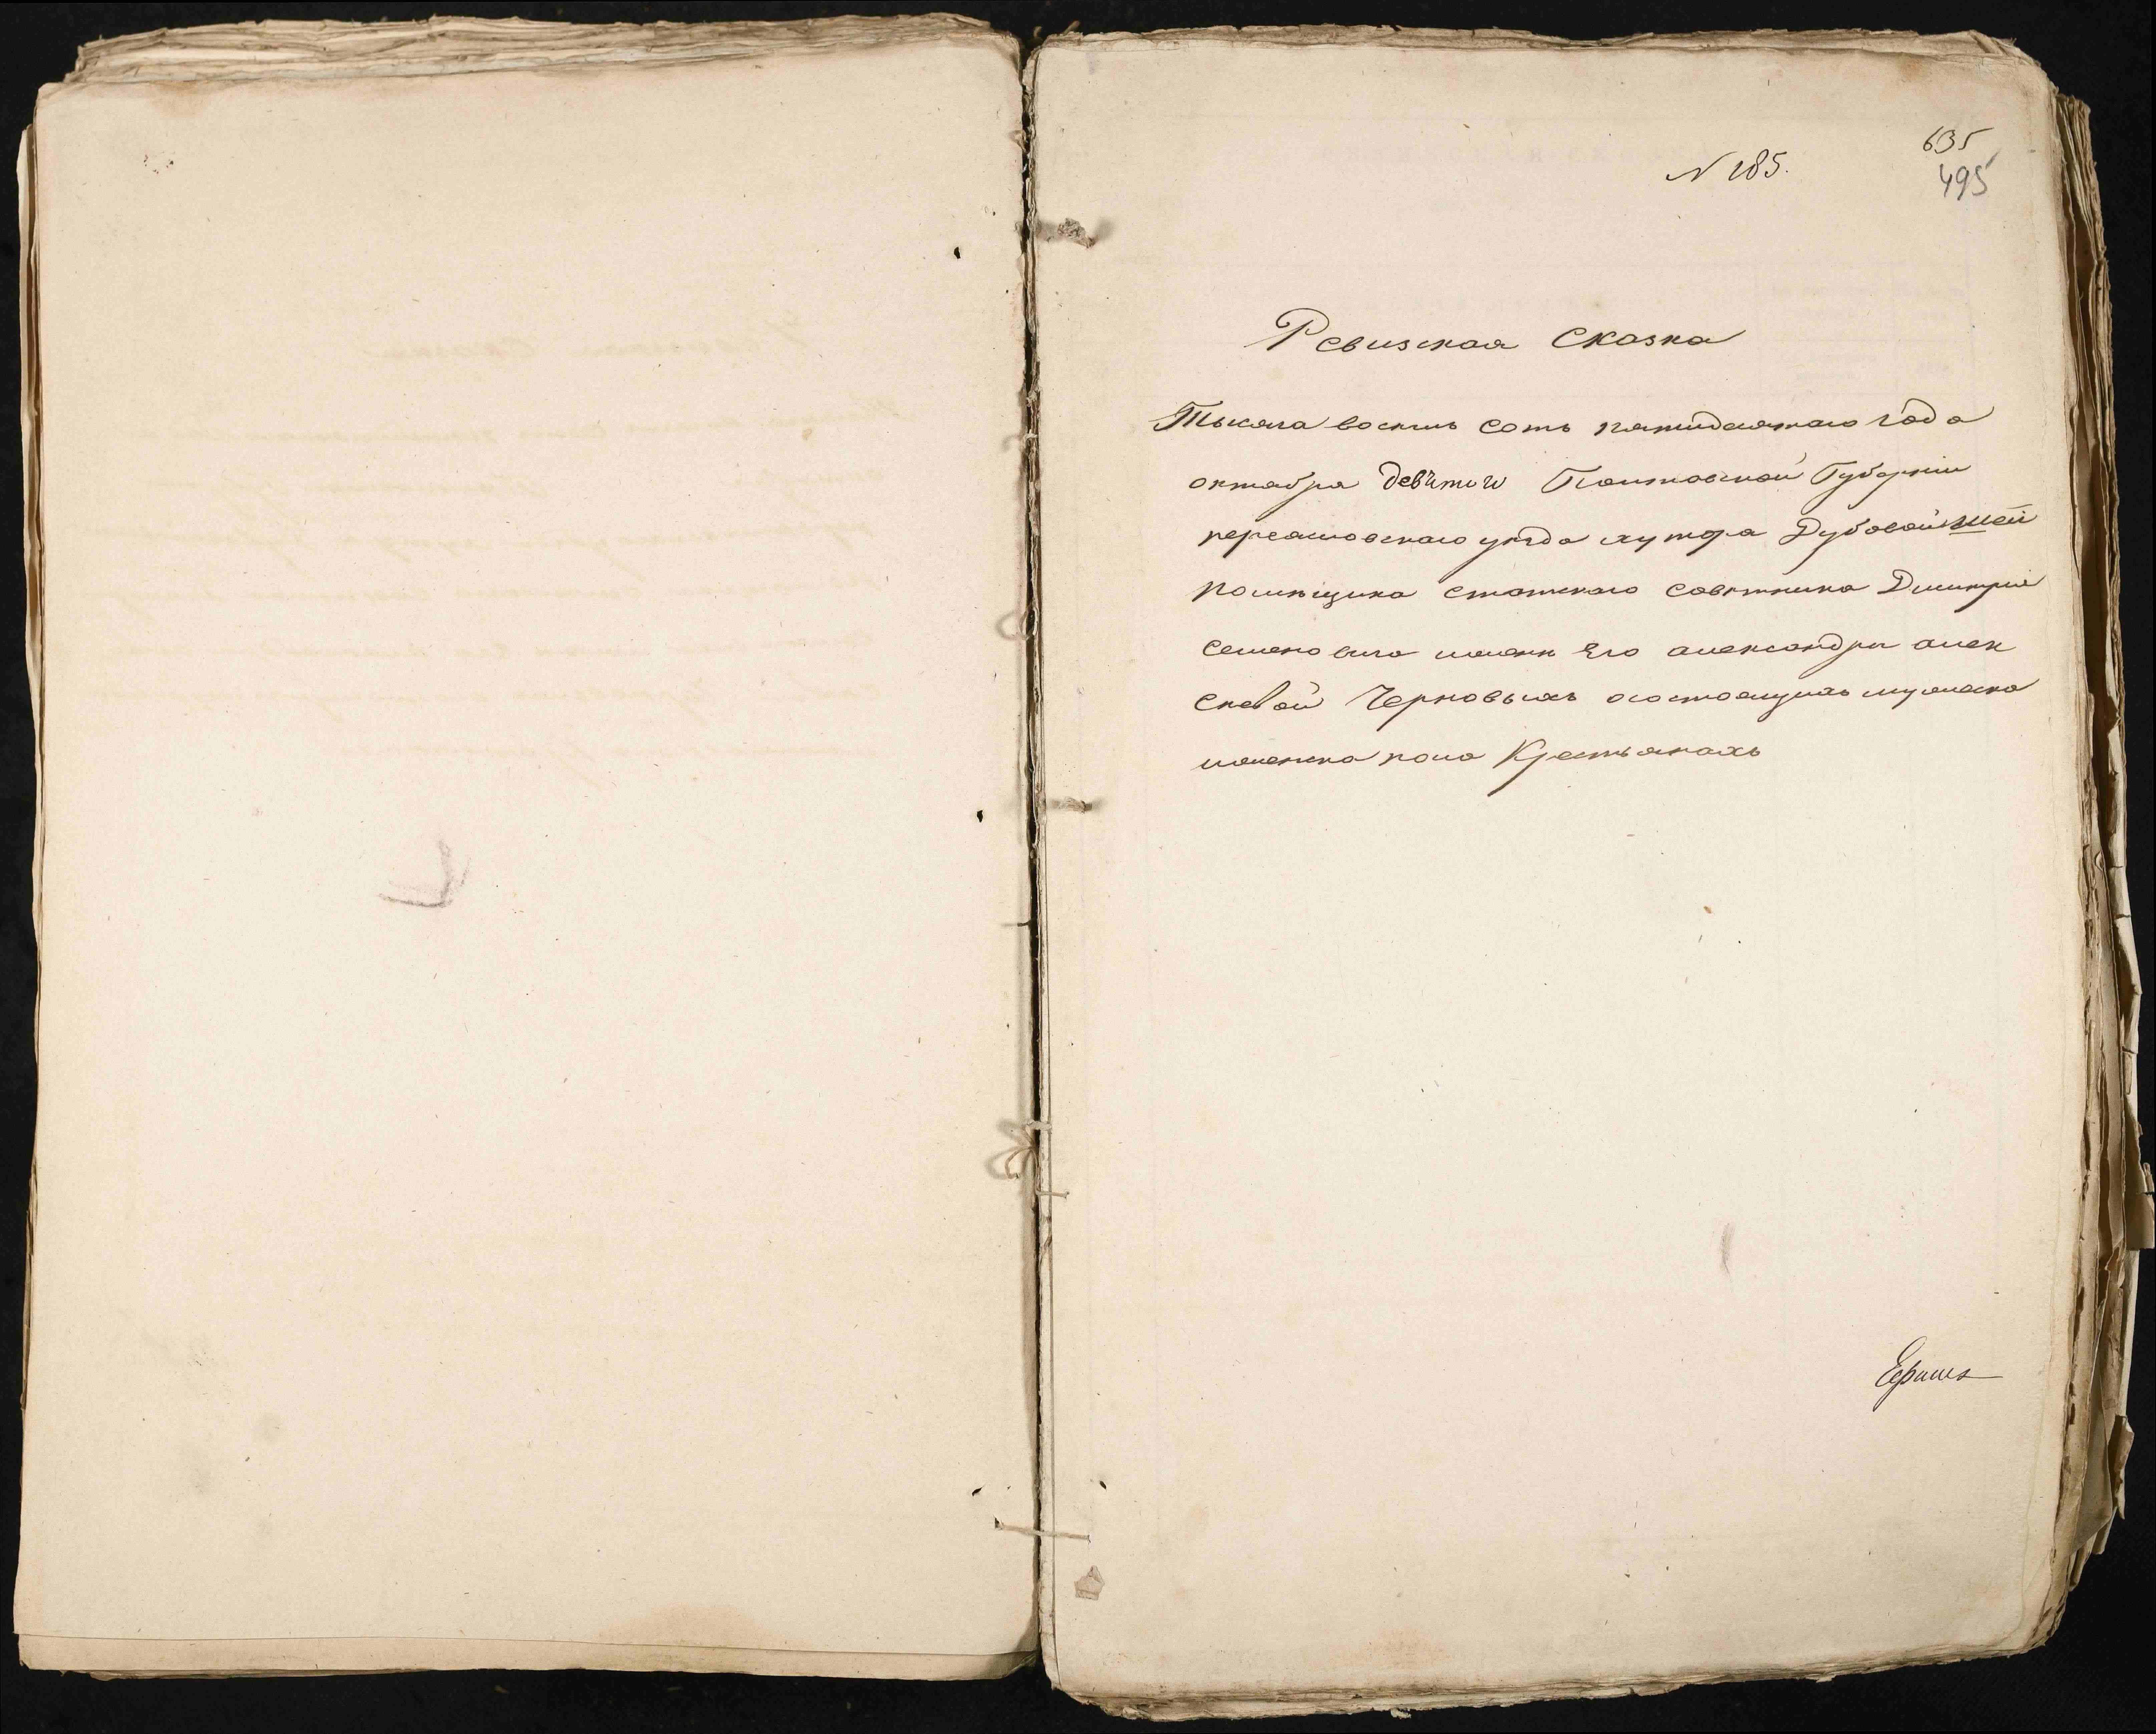 635
N 185.
495
Ревизская Сказка
Тысяча восемь сотъ пятидесятаго года
октября девятого Полтовской Губерніи
переясловскаго уезда хутора Дубовой
помещика статскаго советника Дмитрія
семеновича его александры алек
Черновыхъ состоящихъ мужеска
женска пола Крестьянахъ